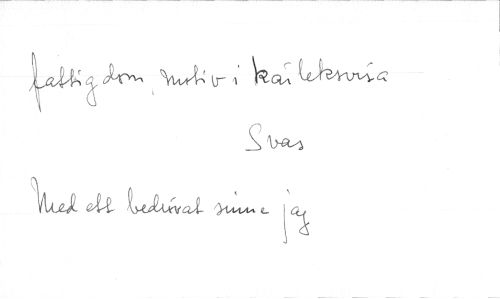 fattigdom, motiv i kärleksvisa
Svas
Med ett bedrövat sinne jag